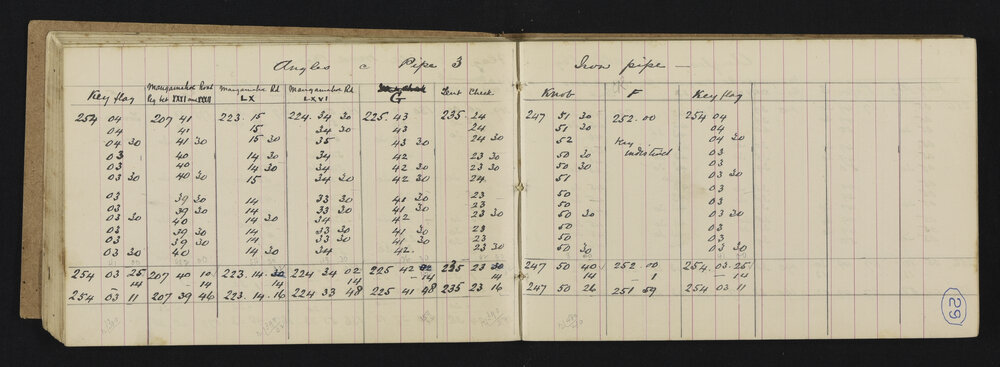 Angles @ Pipe 3 Iron pipe —
Key flag Mangamahoe Road Peg bet XXXI and XXXII Mangamahoe Rd LX Mangamahoe Rd LXVI G Tent Check Knob F Key flag
254 04 207 41 223. 15 224. 34 30 225. 43 235. 24 247 51 30 252. 00 254 04
04 41 15 34 30 43 24 51 30 04
04 30 41 30 15 30 35 43 30 24 30 52 Key 04 30
03 40 14 30 34 42 23 30 50 30 indistinct 03
03 40 14 30 34 42 30 23 30 50 30 03
03 30 40 30 15 34 30 42 30 24 51 03 30
03 39 30 14 33 30 41 30 23 50 03
03 39 30 14 33 30 41 30 23 50 03
03 30 40 14 30 34 42 23 30 50 30 03 30
03 39 30 14 33 30 41 30 23 50 03
03 39 30 14 33 30 41 30 23 50 03
03 30 40 14 30 34 42 23 30 50 30 03 30
254 03 25 207 40 10 223. 14. 30 224 34 02 225 42 02 235 23 30 247 50 40 252. 00 254. 03. 25
14 14 14 — 14 14 14 1 — 14
254 03 11 207 39 46 223. 14. 16 224 33 48 225 41 48 235 23 16 247 50 26 251 59 254 03 11
29